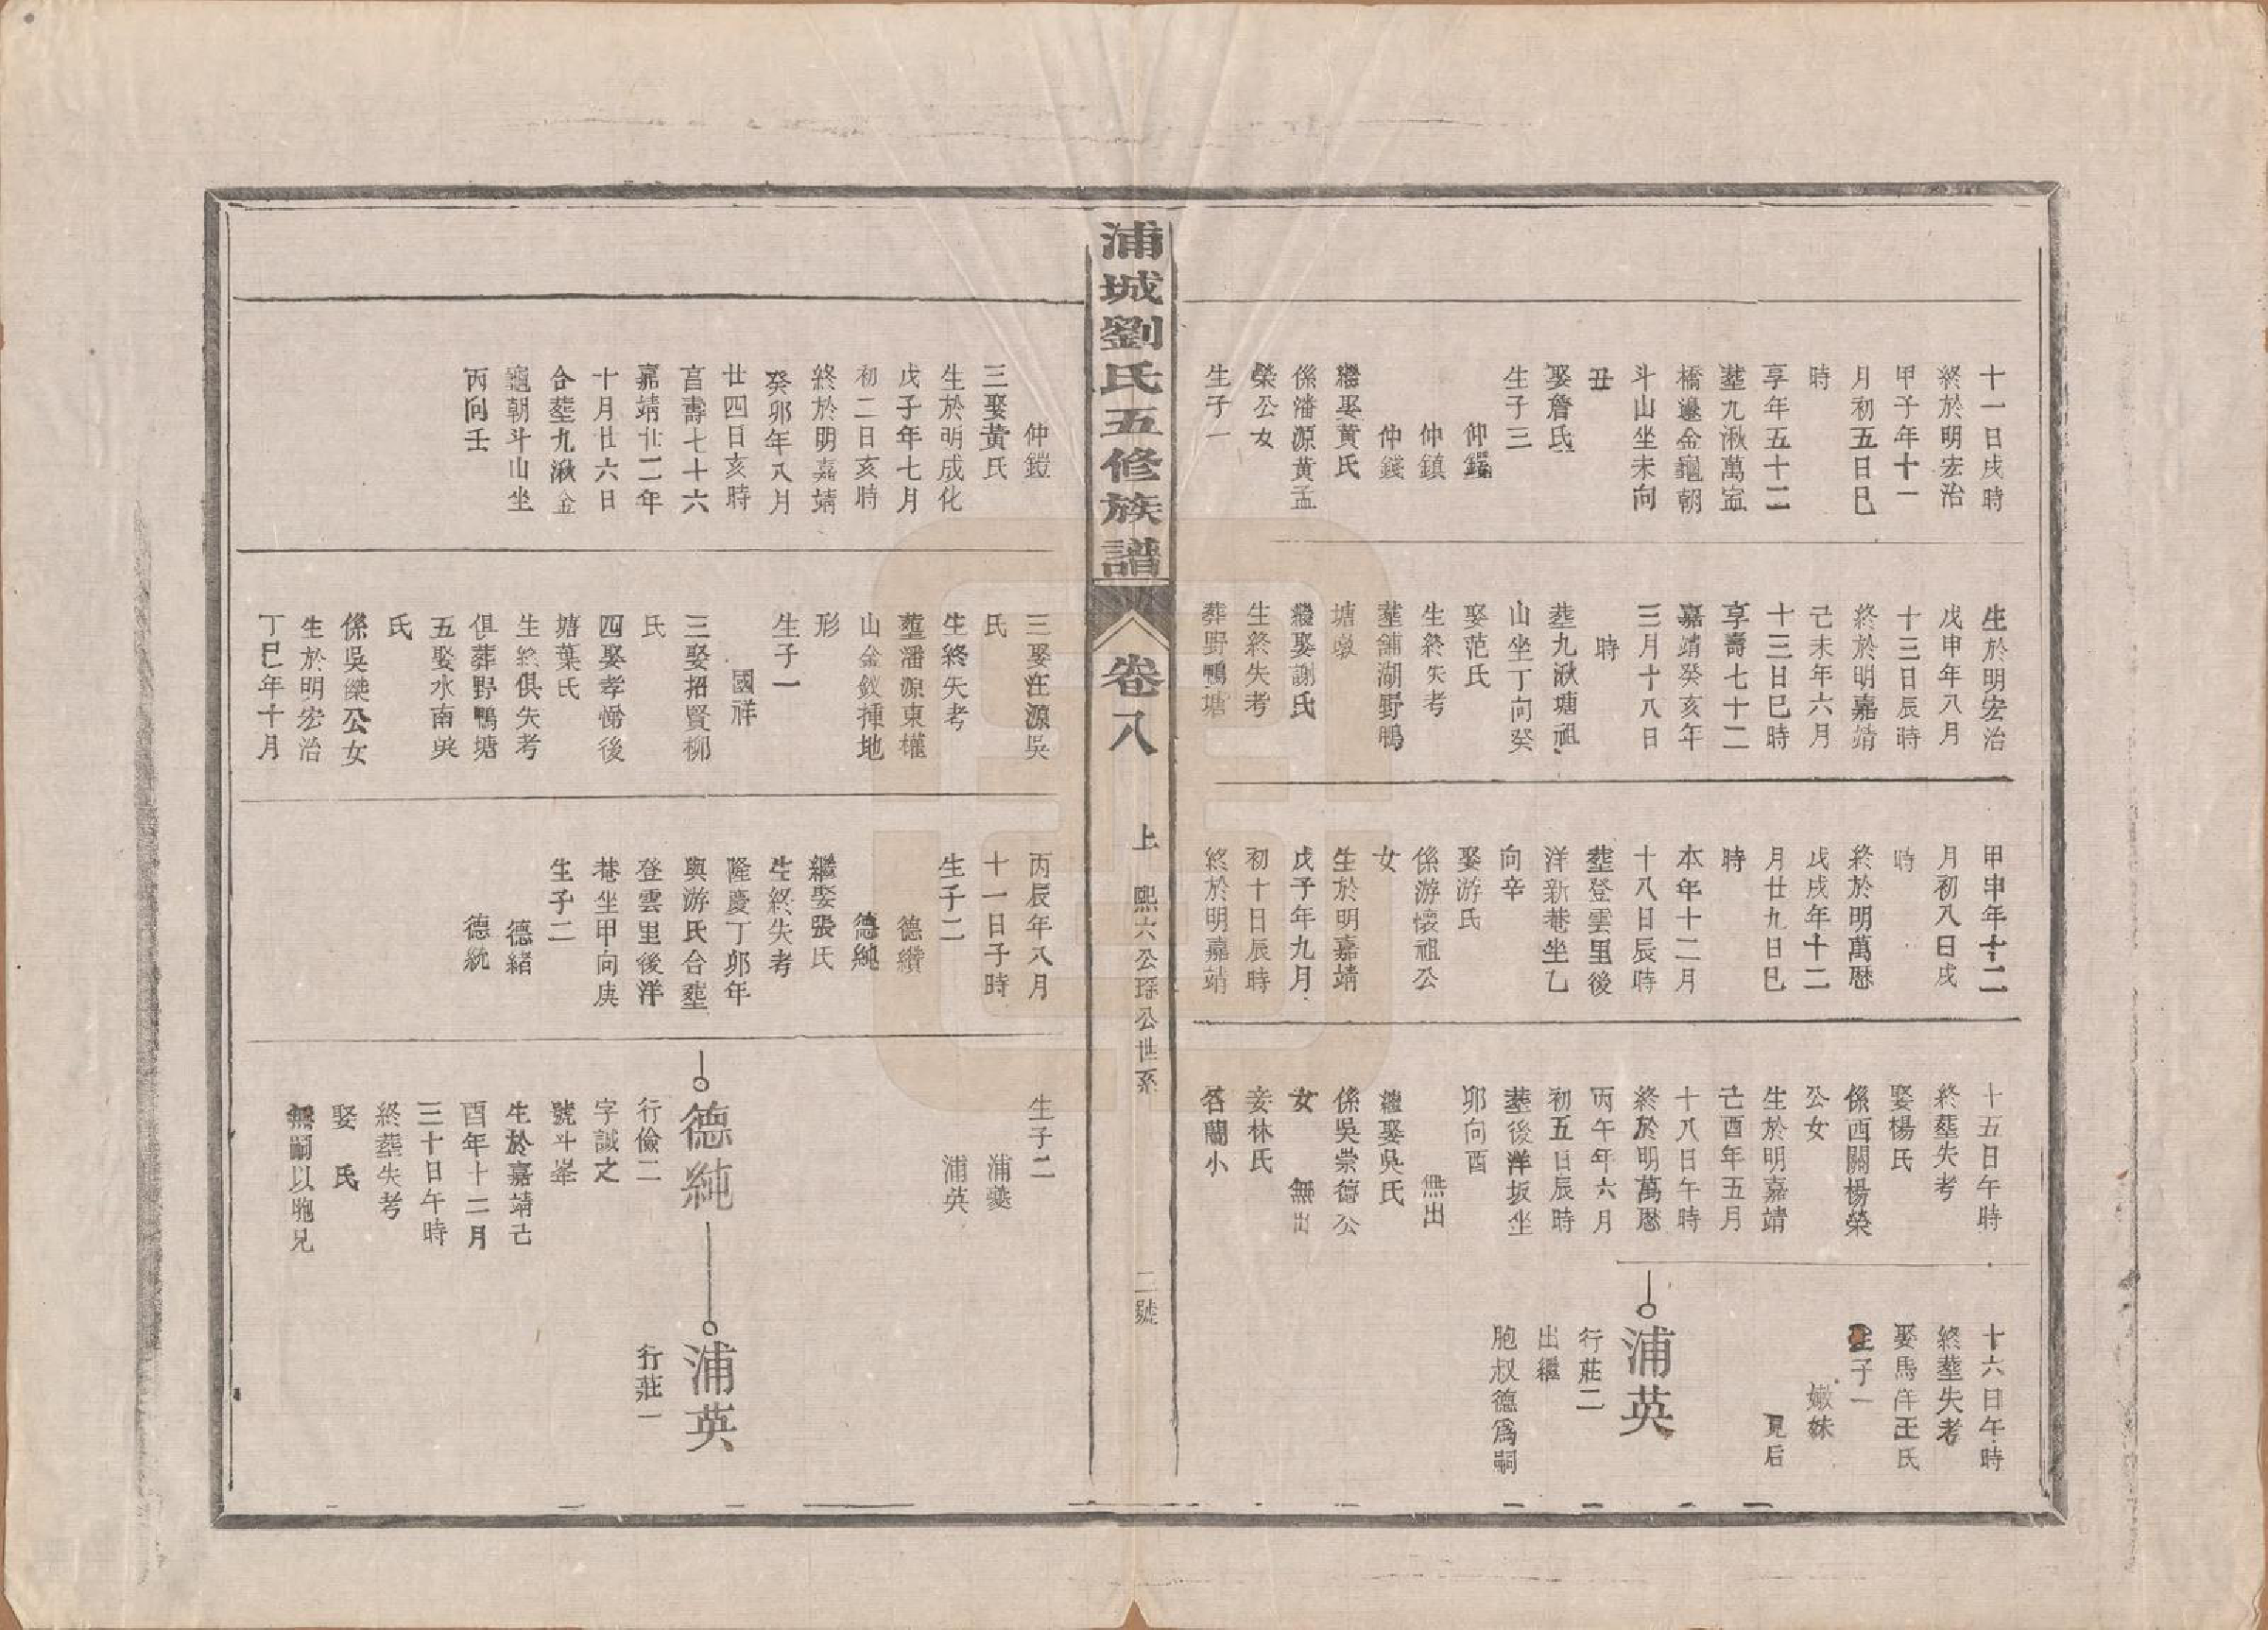 十一日戌時
終於明宏治
甲子年十一
月初五日巳
時
享年五十二
塟九湫萬㝉
橋邊金龜朝
斗山坐未向
丑
娶詹氏
生子三
仲鑑
仲鎮
仲錢
繼娶黃氏
係潘源黃孟
榮公女
生子一
生於明宏治
戊申年八月
十三日辰時
終於明嘉靖
己未年六月
十三日巳時
享壽七十二
嘉靖癸亥年
三月十八日
時
塟九湫塘祖
山坐丁向癸
娶范氏
生終失考
塟舖湖野鴨
塘墩
繼娶謝氏
生終失考
葬野鴨塘
甲申年十二
月初八日戌
時
終於明萬厯
戊戌年十二
月廿九日巳
時
本年十二月
十八日辰時
塟登雲里後
洋新菴坐乙
向辛
娶游氏
係游懷祖公
女
生於明嘉靖
戊子年九月
初十日辰時
終於明嘉靖
十五日午時
終塟失考
娶楊氏
係西關楊榮
公女
生於明嘉靖
己酉年五月
十八日午時
終於明萬厯
丙午年六月
初五日辰時
塟後洋坂坐
卯向酉
無出
繼娶吳氏
係吳崇德公
女 無出
妾林氏
名蘭小
十六日午時
終塟失考
娶馬洋王氏
生子一
嫩妹
見后
浦英
行莊二
出繼
胞叔德爲嗣
浦城劉氏五修族譜
卷八
上 熙六公琛公世系
二號
仲鎧
三娶黃氏
生於明成化
戊子年七月
初二日亥時
終於明嘉靖
癸卯年八月
廿四日亥時
亯壽七十六
嘉靖廿二年
十月廿六日
合塟九湫金
龜朝斗山坐
丙向壬
三娶汪源吳
氏
生終失考
塟潘源東權
山金釵揷地
形
生子一
國祥
三娶招賢柳
氏
四娶孝悌後
塘葉氏
生終俱失考
俱葬野鴨塘
五娶水南吳
氏
係吳傑公女
生於明宏治
丁巳年十月
丙辰年八月
十一日子時
生子二
德纘
德純
繼娶張氏
生終失考
隆慶丁卯年
與游氏合塟
登雲里後洋
菴坐甲向庚
生子二
德緒
德統
生子二
浦夔
浦英
德純
行儉二
字誠之
號斗峯
生於嘉靖己
酉年十二月
三十日午時
終塟失考
娶 氏
無嗣以胞兄
浦英
行莊一